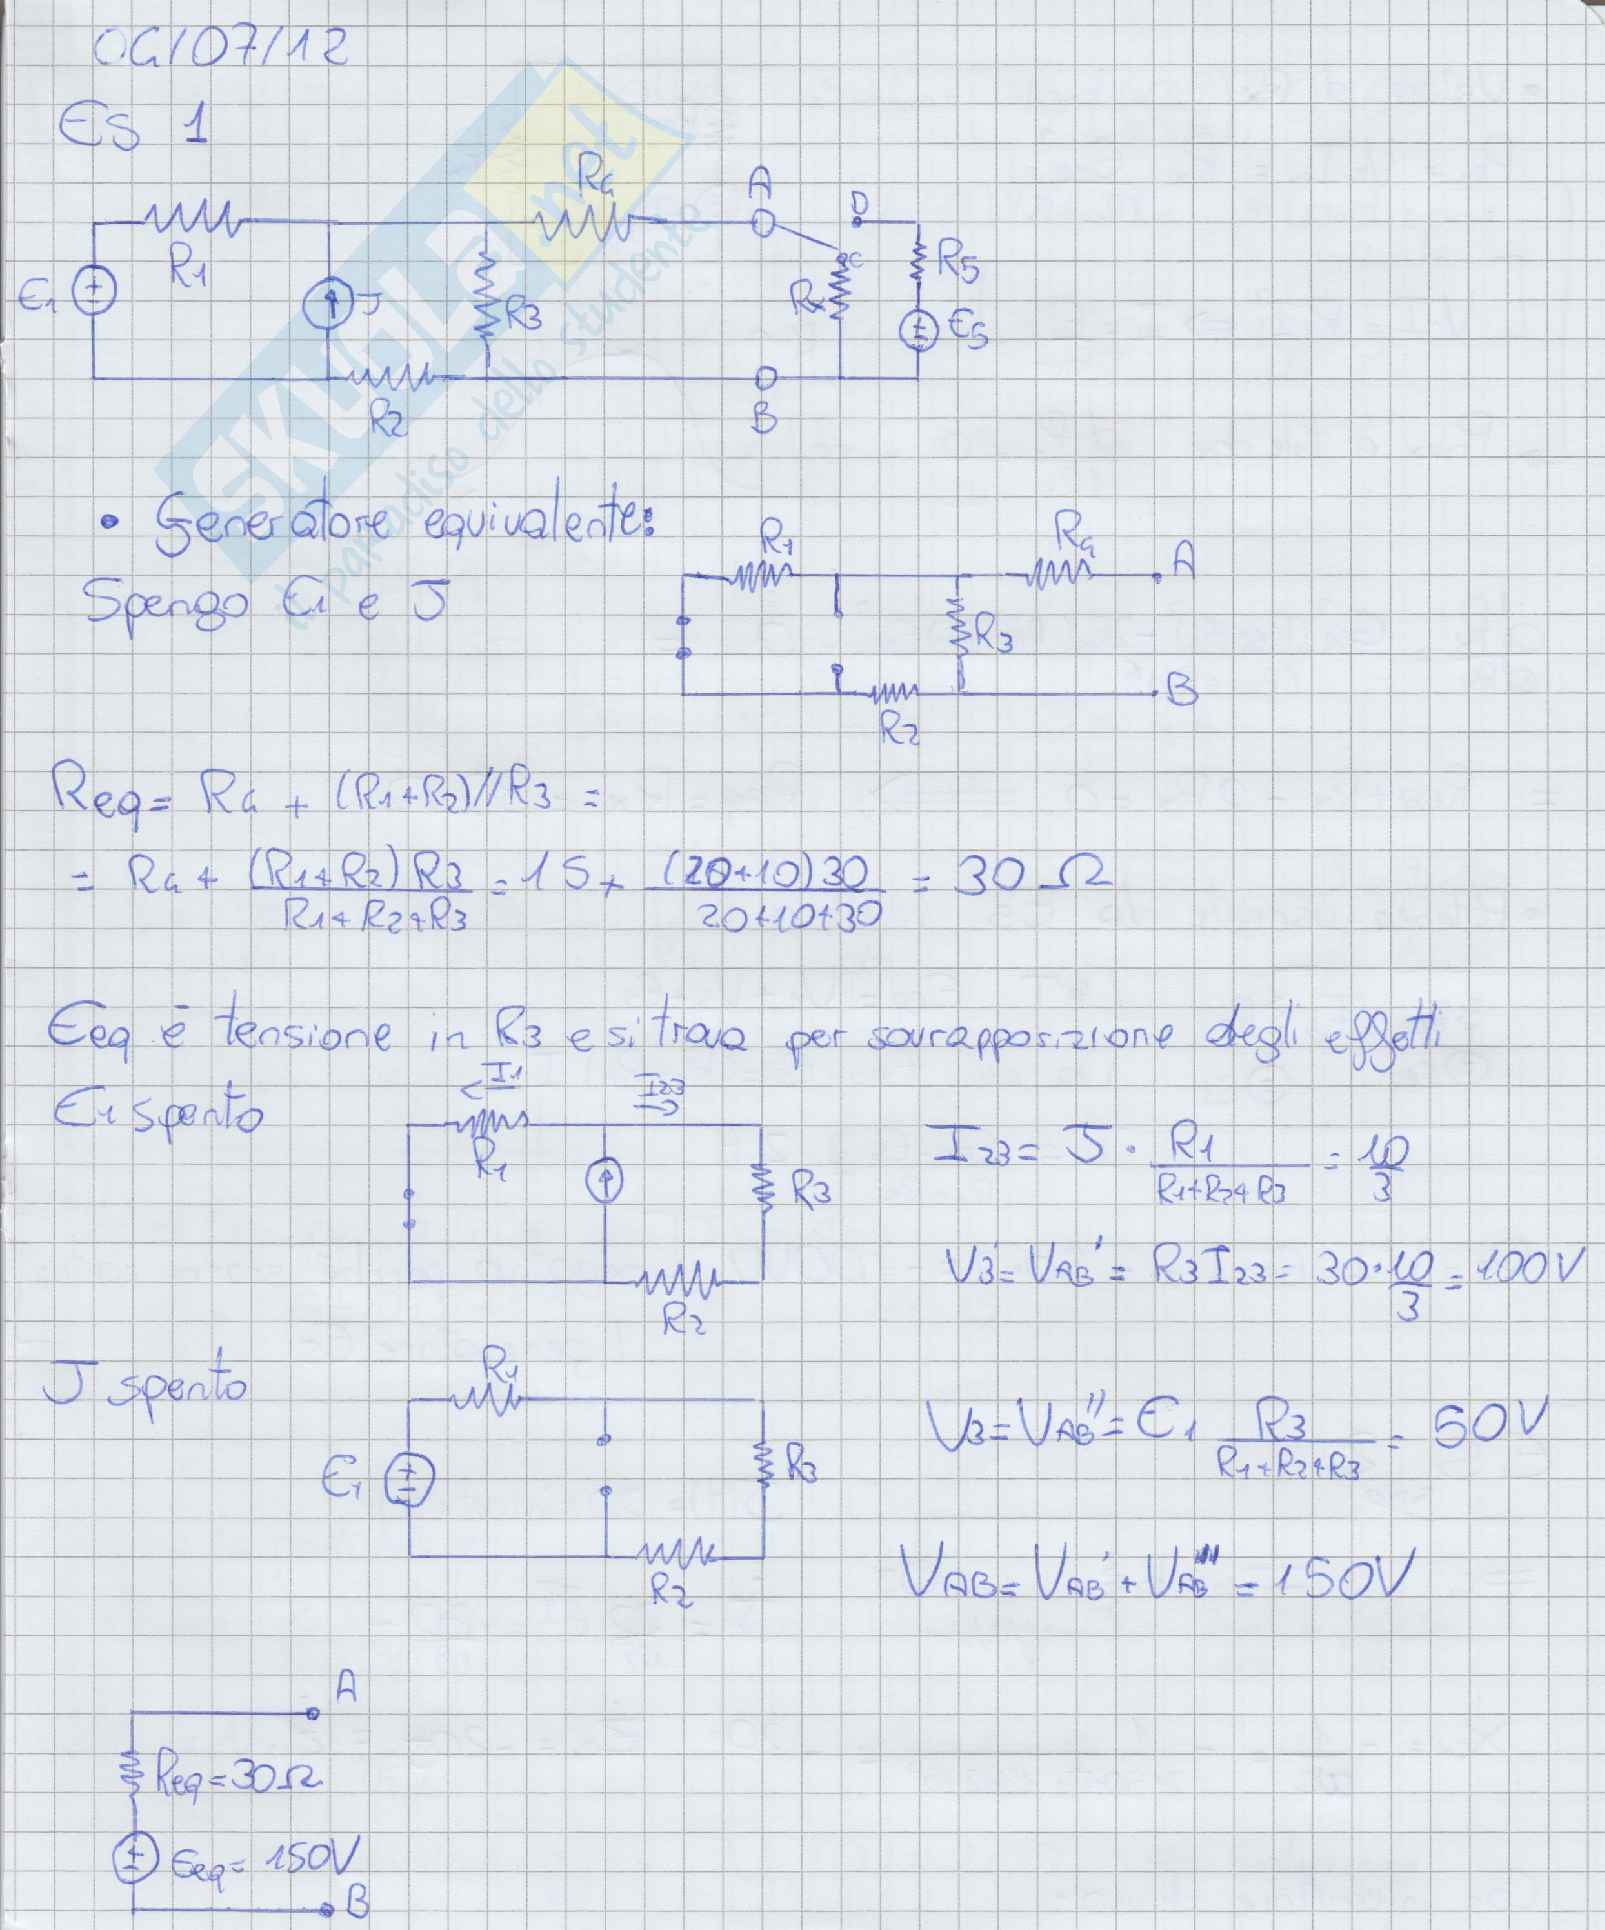 04/07/12
ES 1
R4 A D
R1 C R5
E1 J R3 Rx E5
R2 B
SKUOLA.net
il paradiso dello studente
• Generatore equivalente:
Spengo E1 e J
R1 R4 A
R3
R2 B
Req = R4 + (R1+R2)//R3 =
= R4 + (R1+R2)R3 / R1+R2+R3 = 15 + (20+10)30 / 20+10+30 = 30 Ω
Eeq è tensione in R3 e si trova per sovrapposizione degli effetti
E1 spento
I1 I23
R1 R3
R2
I23 = J · R1 / R1+R2+R3 = 10/3
V3' = VAB' = R3 I23 = 30 · 10/3 = 100V
J spento
R1
E1 R3
R2
V3 = VAB'' = E1 R3 / R1+R2+R3 = 50V
VAB = VAB' + VAB'' = 150V
A
Req = 30Ω
Eeq = 150V
B